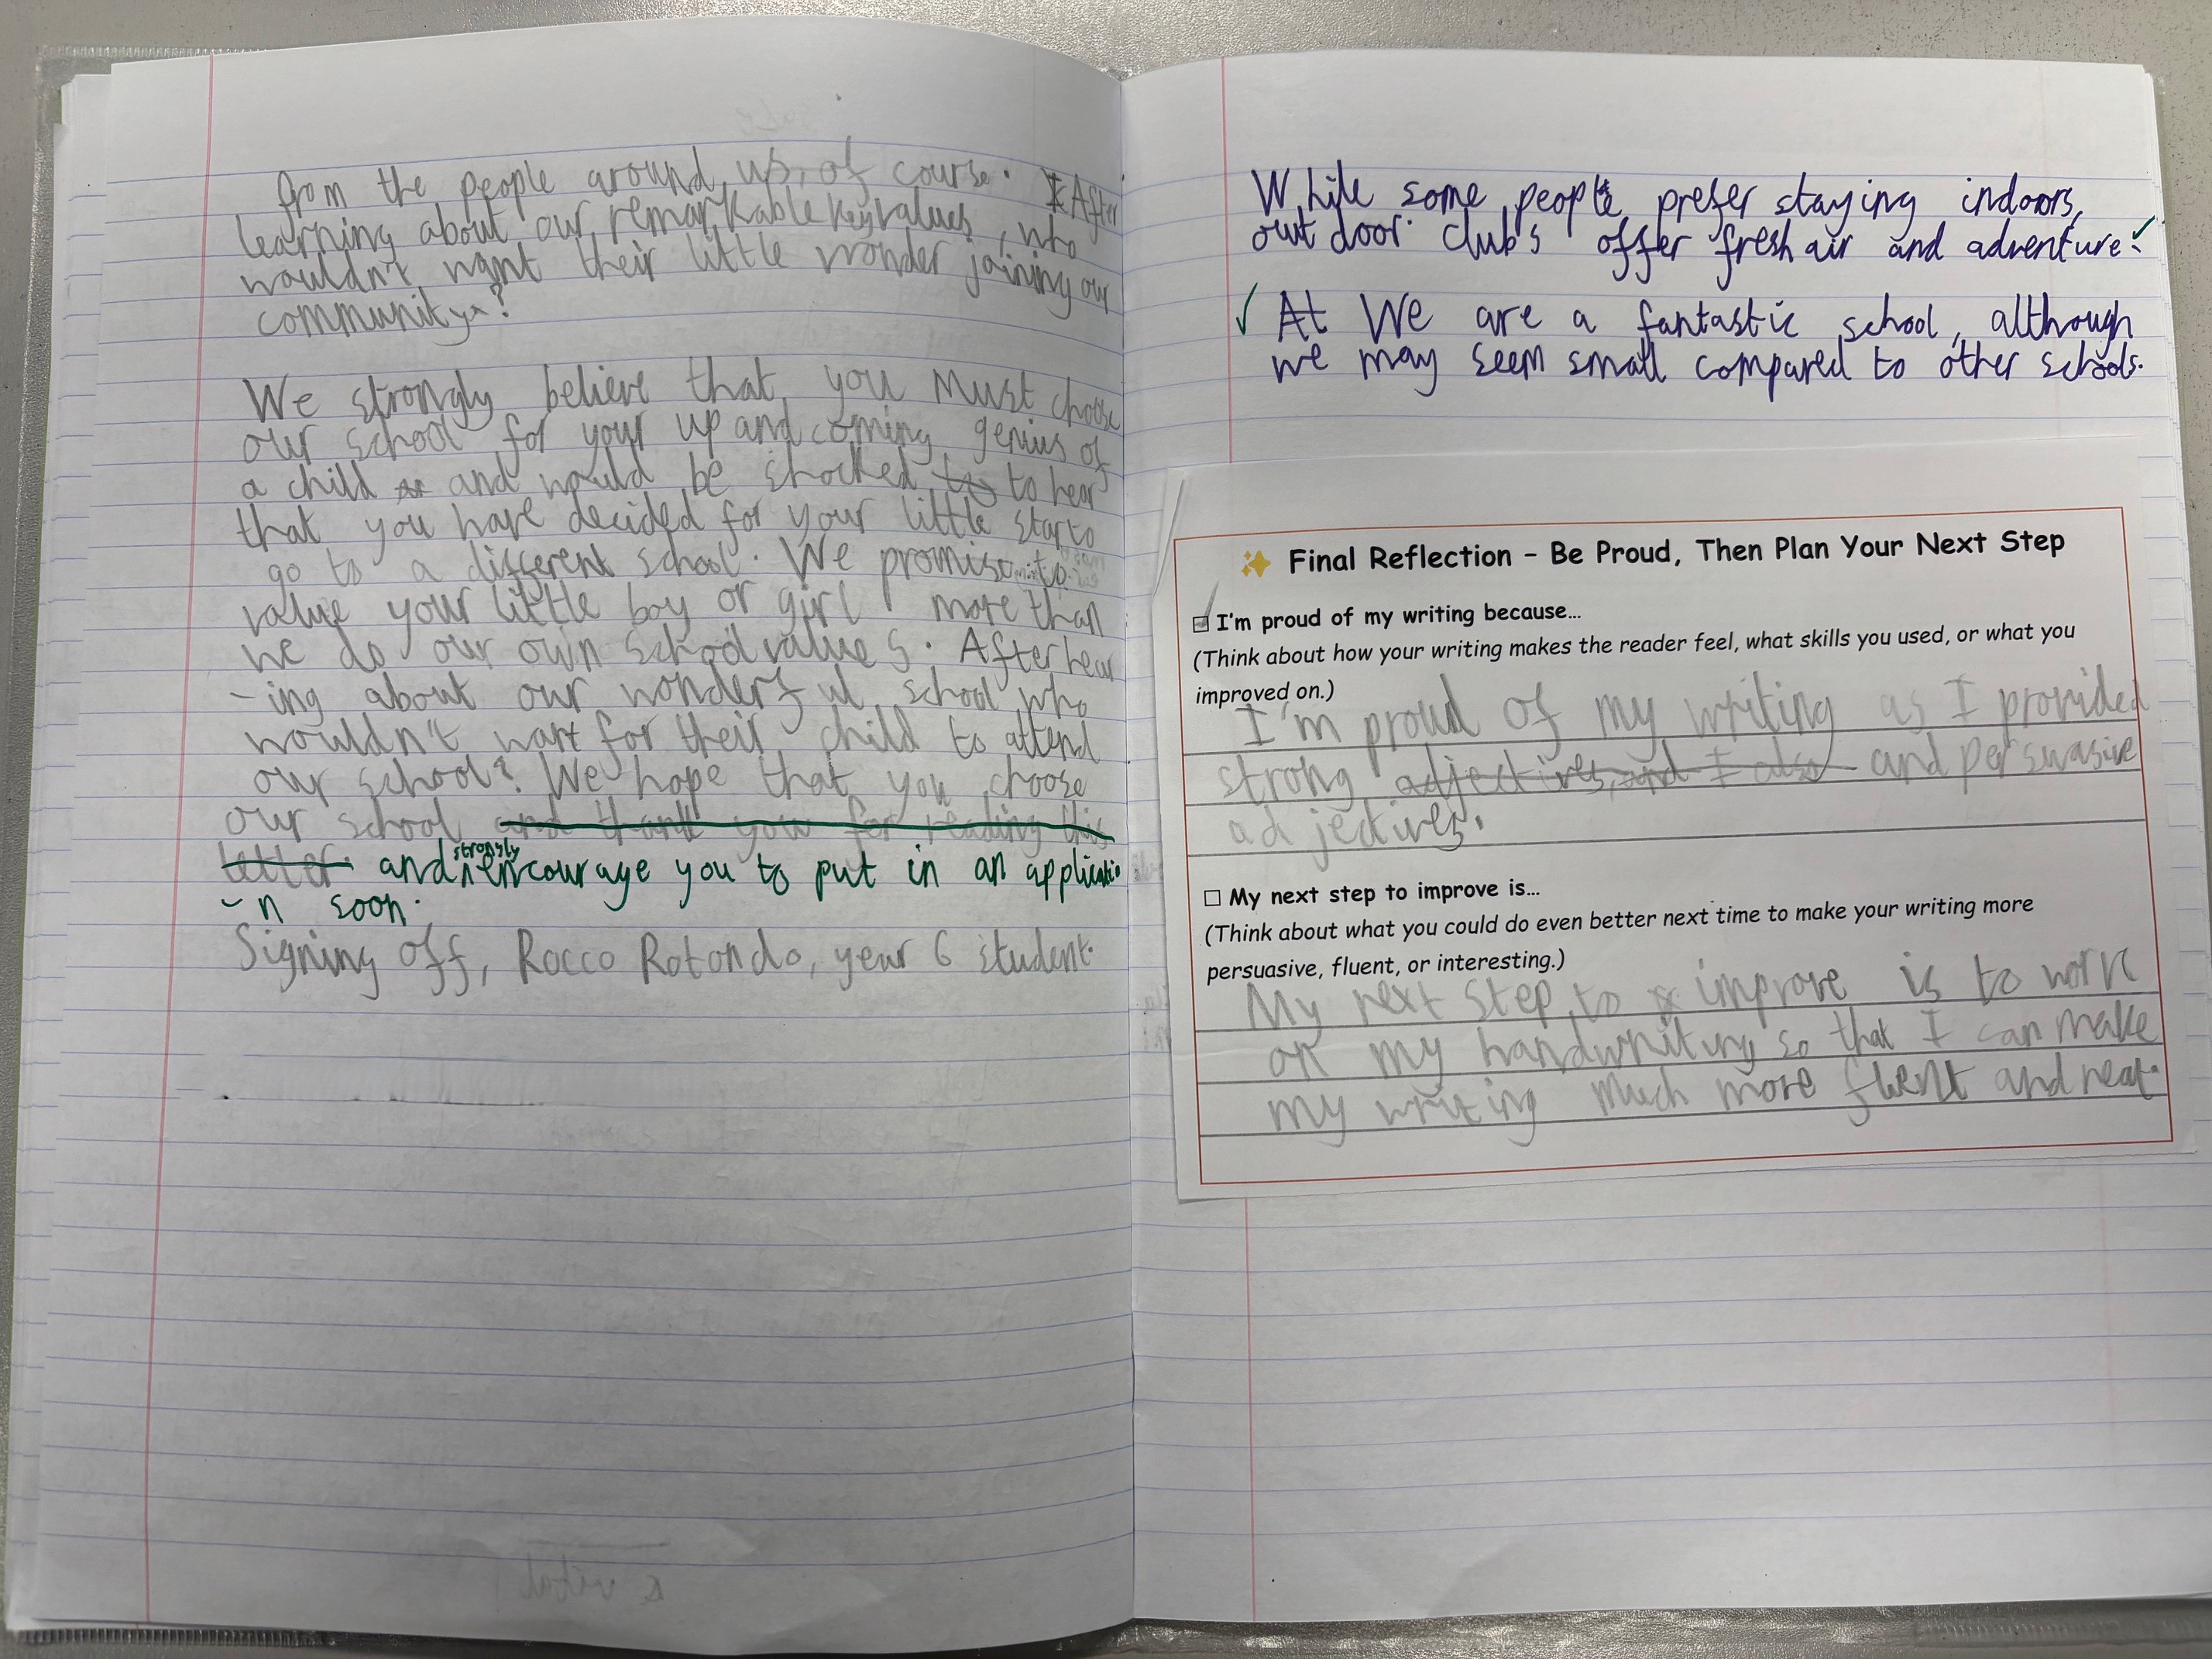 from the people around us, of course. I After
learning about our remarkable key values, who
wouldn't want their little wonder joining our
community?
We strongly believe that you must choose
our school for your up and coming genius of
a child and would be shocked to to hear
that you have decided for your little star to
go to a different school. We promise to
value your little boy or girl more than
we do our own school values. After hear
-ing about our wonderful school who
wouldn't want for their child to attend
our school? We hope that you choose
our school and thank you for reading this
letter. and strongly encourage you to put in an applicatio
-n soon.
Signing off, Rocco Rotondo, year 6 student.
While some people prefer staying indoors,
outdoor clubs offer fresh air and adventure.
At We are a fantastic school, although
we may seem small compared to other schools.
Final Reflection – Be Proud, Then Plan Your Next Step
I'm proud of my writing because...
(Think about how your writing makes the reader feel, what skills you used, or what you
improved on.)
I'm proud of my writing as I provided
strong adjectives, and I also and persuasive
adjectives.
My next step to improve is...
(Think about what you could do even better next time to make your writing more
persuasive, fluent, or interesting.)
My next step to improve is to work
on my handwriting so that I can make
my writing much more fluent and neat.